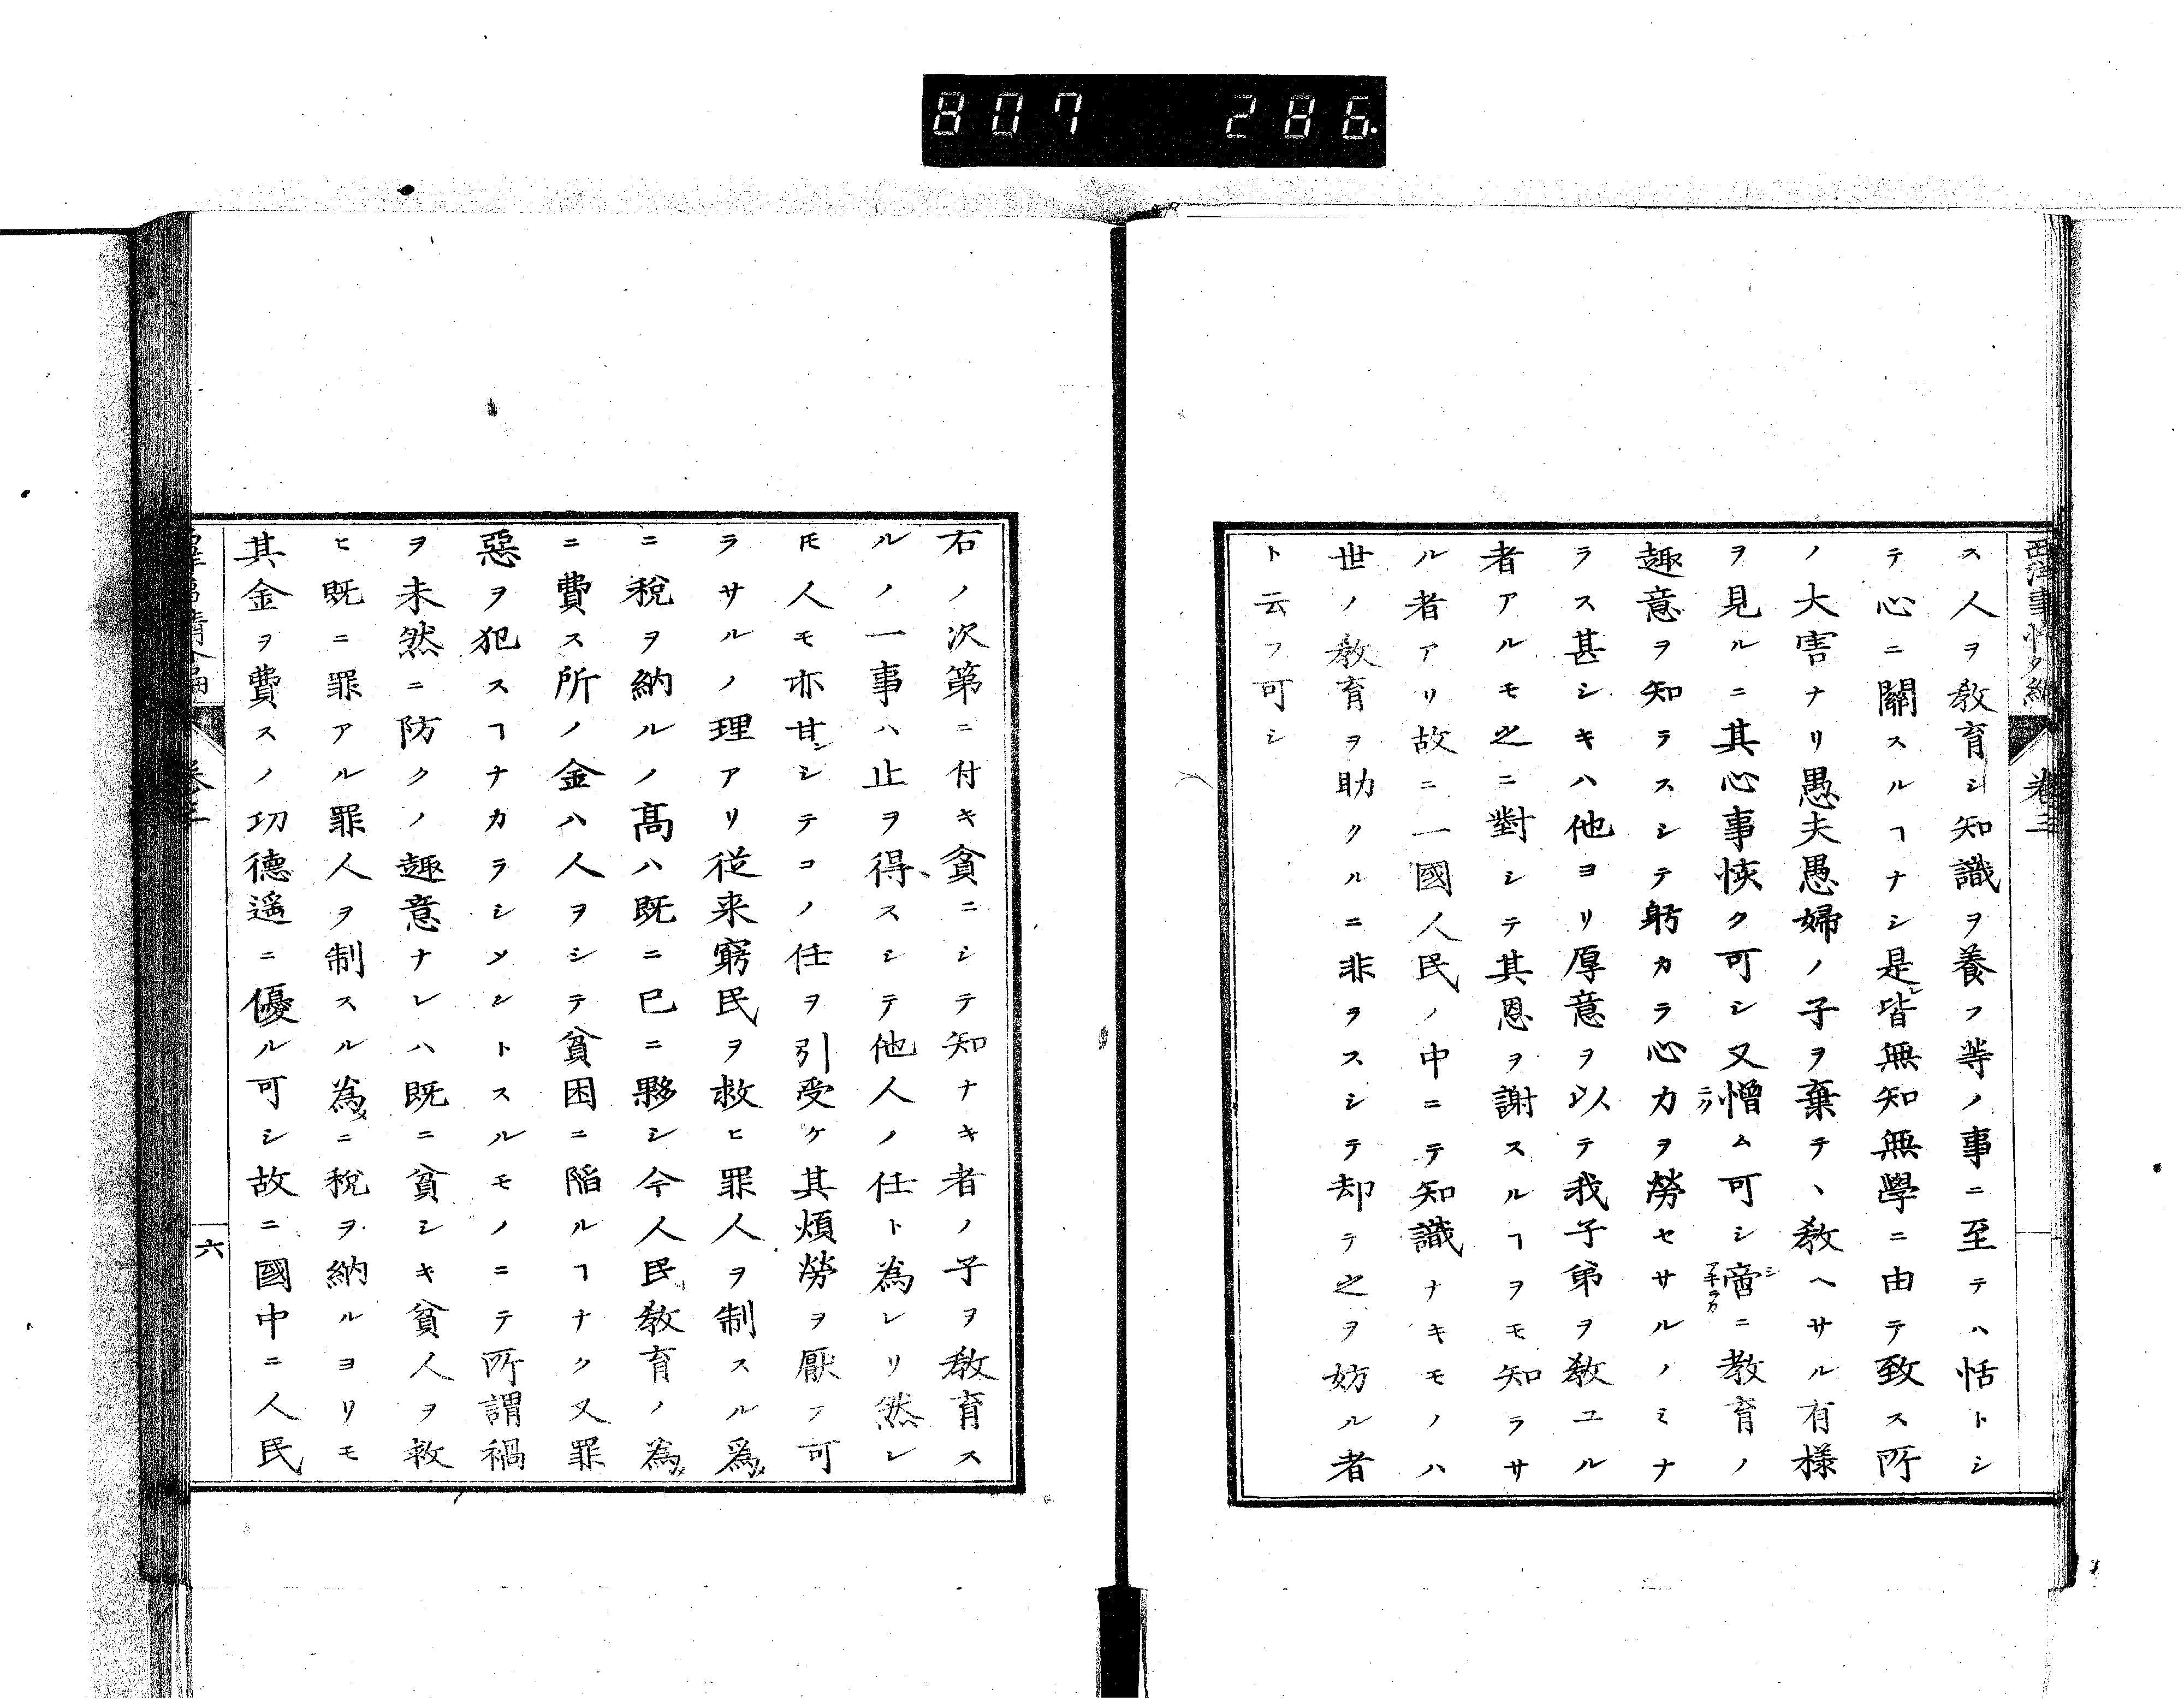 807 286.
西洋事情外編 卷三
ス人ヲ敎育シ知識ヲ養フ等ノ事ニ至テハ恬トシ
テ心ニ關スルヿナシ是レ皆無知無學ニ由テ致ス所
ノ大害ナリ愚夫愚婦ノ子ヲ棄テヽ敎ヘサル有樣
ヲ見ルニ其心事恢ク可シ又憎ム可シ啻ニ教育ノ
趣意ヲ知ラスシテ躬カラ心力ヲ勞セサルノミナ
ラス甚シキハ他ヨリ厚意ヲ以テ我子弟ヲ敎ユル
者アルモ之ニ對シテ其恩ヲ謝スルヿヲモ知ラサ
ル者アリ故ニ一國人民ノ中ニテ知識ナキモノハ
世ノ敎育ヲ助クルニ非ヲスシテ却テ之ヲ妨ル者
ト云フ可シ
右ノ次第ニ付キ貧ニシテ知ナキ者ノ子ヲ敎育ス
ルノ一事ハ止ヲ得スシテ他人ノ任ト為レリ然レ
𪜈人モ亦甘シシテコノ任ヲ引受ケ其煩勞ヲ厭フ可
ラサルノ理アリ從来窮民ヲ救ヒ罪人ヲ制スル爲メ
ニ稅ヲ納ルノ髙ハ既ニ已ニ夥シ今人民敎育ノ為メ
ニ費ス所ノ金ハ人ヲシテ貧困ニ陷ルヿナク又罪
惡ヲ犯スヿナカラシメントスルモノニテ所謂禍
ヲ未然ニ防クノ趣意ナレハ既ニ貧シキ貧人ヲ救
ヒ既ニ罪アル罪人ヲ制スル為メニ稅ヲ納ルヨリモ
其金ヲ費スノ功德遥ニ優ル可シ故ニ國中ニ人民
卷三
六